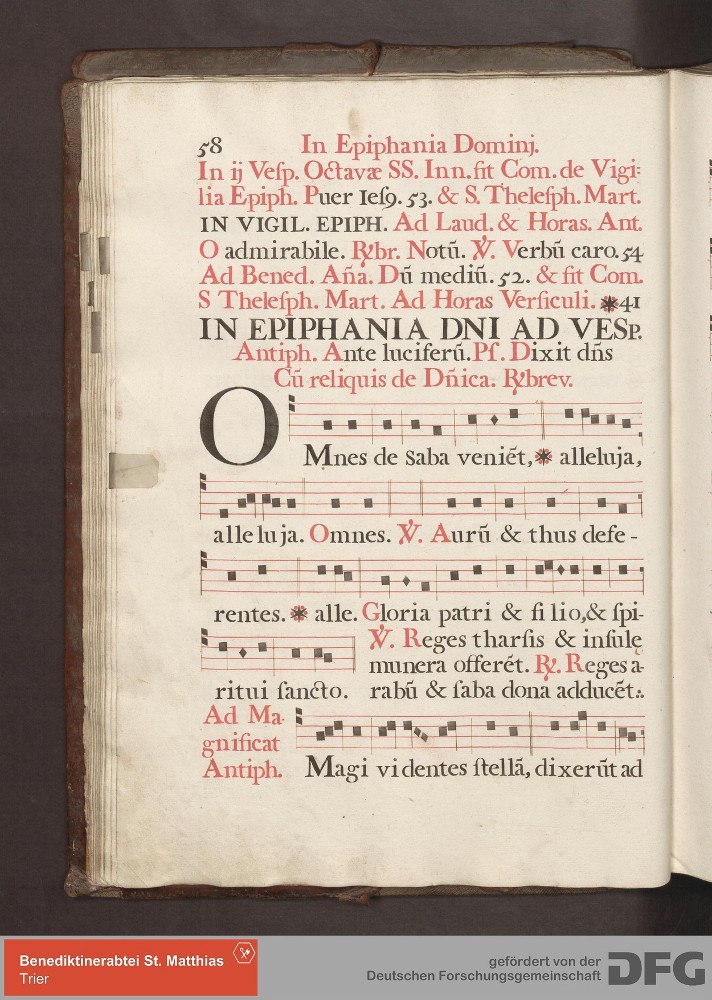 58 In Epiphania Dominj.
In ij Veſp. Octavæ SS. Inn. fit Com. de Vigi:
lia Epiph. Puer Ieſ9. 53. & S. Theleſph. Mart.
IN VIGIL. EPIPH. Ad Laud. & Horas. Ant.
O admirabile. R̷br. Notū. V̷. Verbū caro. 54
Ad Bened. Aña. Dū mediū. 52. & fit Com.
S Theleſph. Mart. Ad Horas Verſiculi. ✱41
IN EPIPHANIA DNI AD VESP.
Antiph. Ante luciferū. Pſ. Dixit dñs
Cū reliquis de Dñica. R̷brev.
OMnes de Saba veniēt, ✱ alleluja,
alle lu ja. Omnes. V̷. Aurū & thus defe -
rentes. ✱ alle. Gloria patri & fi lio, & ſpi-
ritui ſancto.
V̷. Reges tharſis & inſulę
munera offerēt. R̷. Reges a-
rabū & ſaba dona adducēt:.
Ad Ma-
gnificat
Antiph.
Magi videntes ſtellā, dixerūt ad
Benediktinerabtei St. Matthias
Trier
gefördert von der
Deutschen Forschungsgemeinschaft
DFG